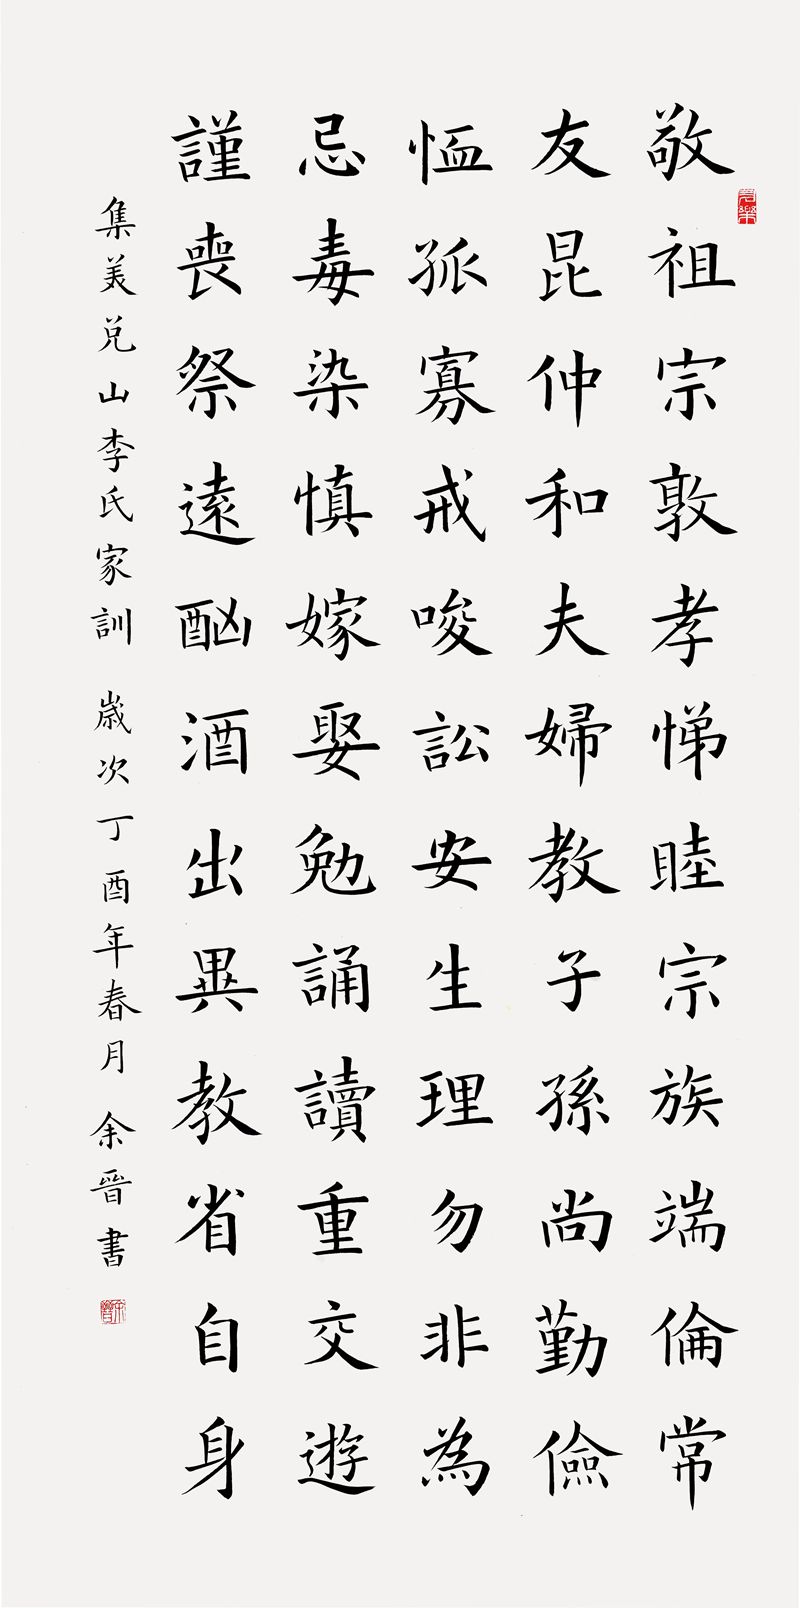 敬祖宗敦孝悌睦宗族端倫常
友昆仲和夫婦教子孫尚勤儉
恤孤寡戒唆訟安生理勿非為
忌毒染慎嫁娶勉誦讀重交遊
謹喪祭遠酗酒出異教省自身
集美兑山李氏家訓 歲次丁酉年春月 余晉書